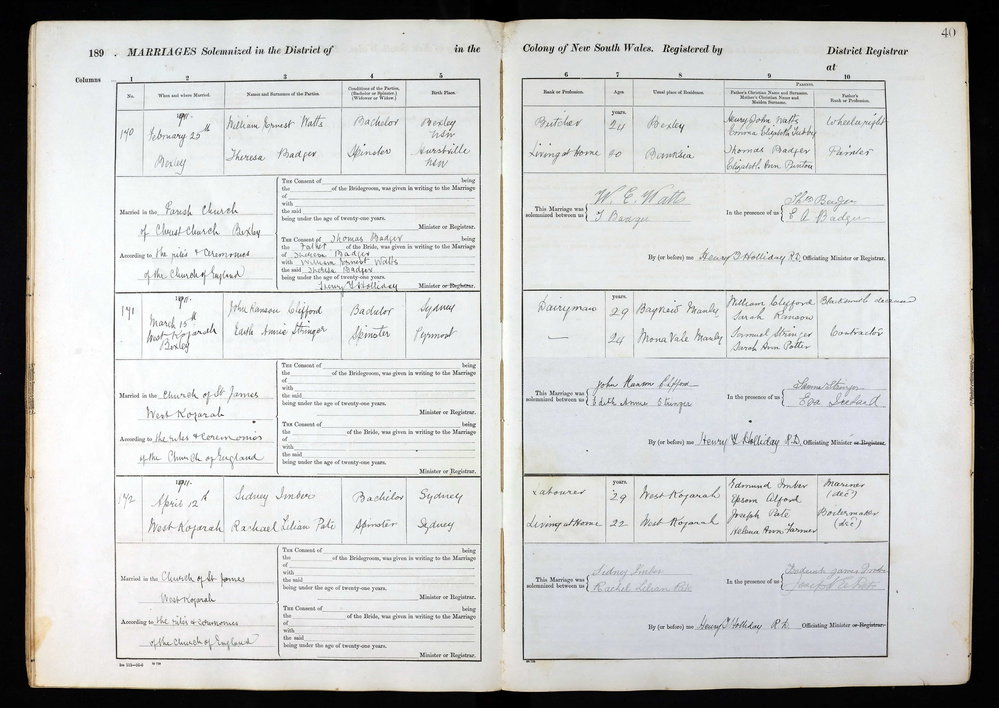 189 . MARRIAGES Solemnized in the District of in the
Columns 1 2 3 4 5
No. When and where Married. Names and Surnames of the Parties. Conditions of the Parties. (Bachelor or Spinster.) (Widower or Widow.) Birth Place.
1911.
170 February 25th William Ernest Watts Bachelor Bexley NSW
Bexley Theresa Badger Spinster Hurstville NSW
Married in the Parish Church
of Christ Church Bexley
According to the rites & Ceremonies
of the Church of England
THE CONSENT of being
the of the Bridegroom, was given in writing to the Marriage
of
with
the said
being under the age of twenty-one years.
Minister or Registrar.
THE CONSENT of Thomas Badger being
the Father of the Bride, was given in writing to the Marriage
of Theresa Badger
with William Ernest Watts
the said Theresa Badger
being under the age of twenty-one years.
Henry T Holliday
Minister or Registrar.
1911.
171 March 15th John Ranson Clifford Bachelor Sydney
West Kogarah
Bexley Edith Annie Stringer Spinster Pyrmont
Married in the Church of St James
West Kogarah
According to the rites & ceremonies
of the Church of England
THE CONSENT of being
the of the Bridegroom, was given in writing to the Marriage
of
with
the said
being under the age of twenty-one years.
Minister or Registrar.
THE CONSENT of being
the of the Bride, was given in writing to the Marriage
of
with
the said
being under the age of twenty-one years.
Minister or Registrar.
1911.
172 April 12th Sidney Imber Bachelor Sydney
West Kogarah Rachael Lilian Pate Spinster Sydney
Married in the Church of St James
West Kogarah
According to the rites & ceremonies
of the Church of England
THE CONSENT of being
the of the Bridegroom, was given in writing to the Marriage
of
with
the said
being under the age of twenty-one years.
Minister or Registrar.
THE CONSENT of being
the of the Bride, was given in writing to the Marriage
of
with
the said
being under the age of twenty-one years.
Minister or Registrar.
40
Colony of New South Wales. Registered by District Registrar
at
6 7 8 9 10
PARENTS.
Rank or Profession. Ages. Usual place of Residence. Father's Christian Name and Surname. Mother's Christian Name and Maiden Surname. Father's Rank or Profession.
years.
Butcher 24 Bexley Henry John Watts Wheelwright
Emma Elizabeth
Living at Home 20 Banksia Thomas Badger Painter
Elizabeth Ann
This Marriage was solemnized between us W. E. Watts
T Badger
In the presence of us Thos Badger
E A Badger
By (or before) me Henry T Holliday R.D. Officiating Minister or Registrar.
years.
Dairyman 29 Bayview Manly William Clifford Blacksmith deceased
Sarah Ranson
— 24 Mona Vale Manly Samuel Stringer Contractor
Sarah Ann Potter
This Marriage was solemnized between us John Ranson Clifford
Edith Annie Stringer
In the presence of us Stringer
Eva
By (or before) me Henry T Holliday R.D. Officiating Minister or Registrar.
years.
Labourer 29 West Kogarah Edmund Imber Mariner
Alford (dec)
Living at Home 22 West Kogarah Joseph Pate Boilermaker
Helena Ann Farmer (dec)
This Marriage was solemnized between us Sidney Imber
Rachel Lilian Pate
In the presence of us Frederick James Imber
Joseph Pate
By (or before) me Henry T Holliday R.D. Officiating Minister or Registrar.